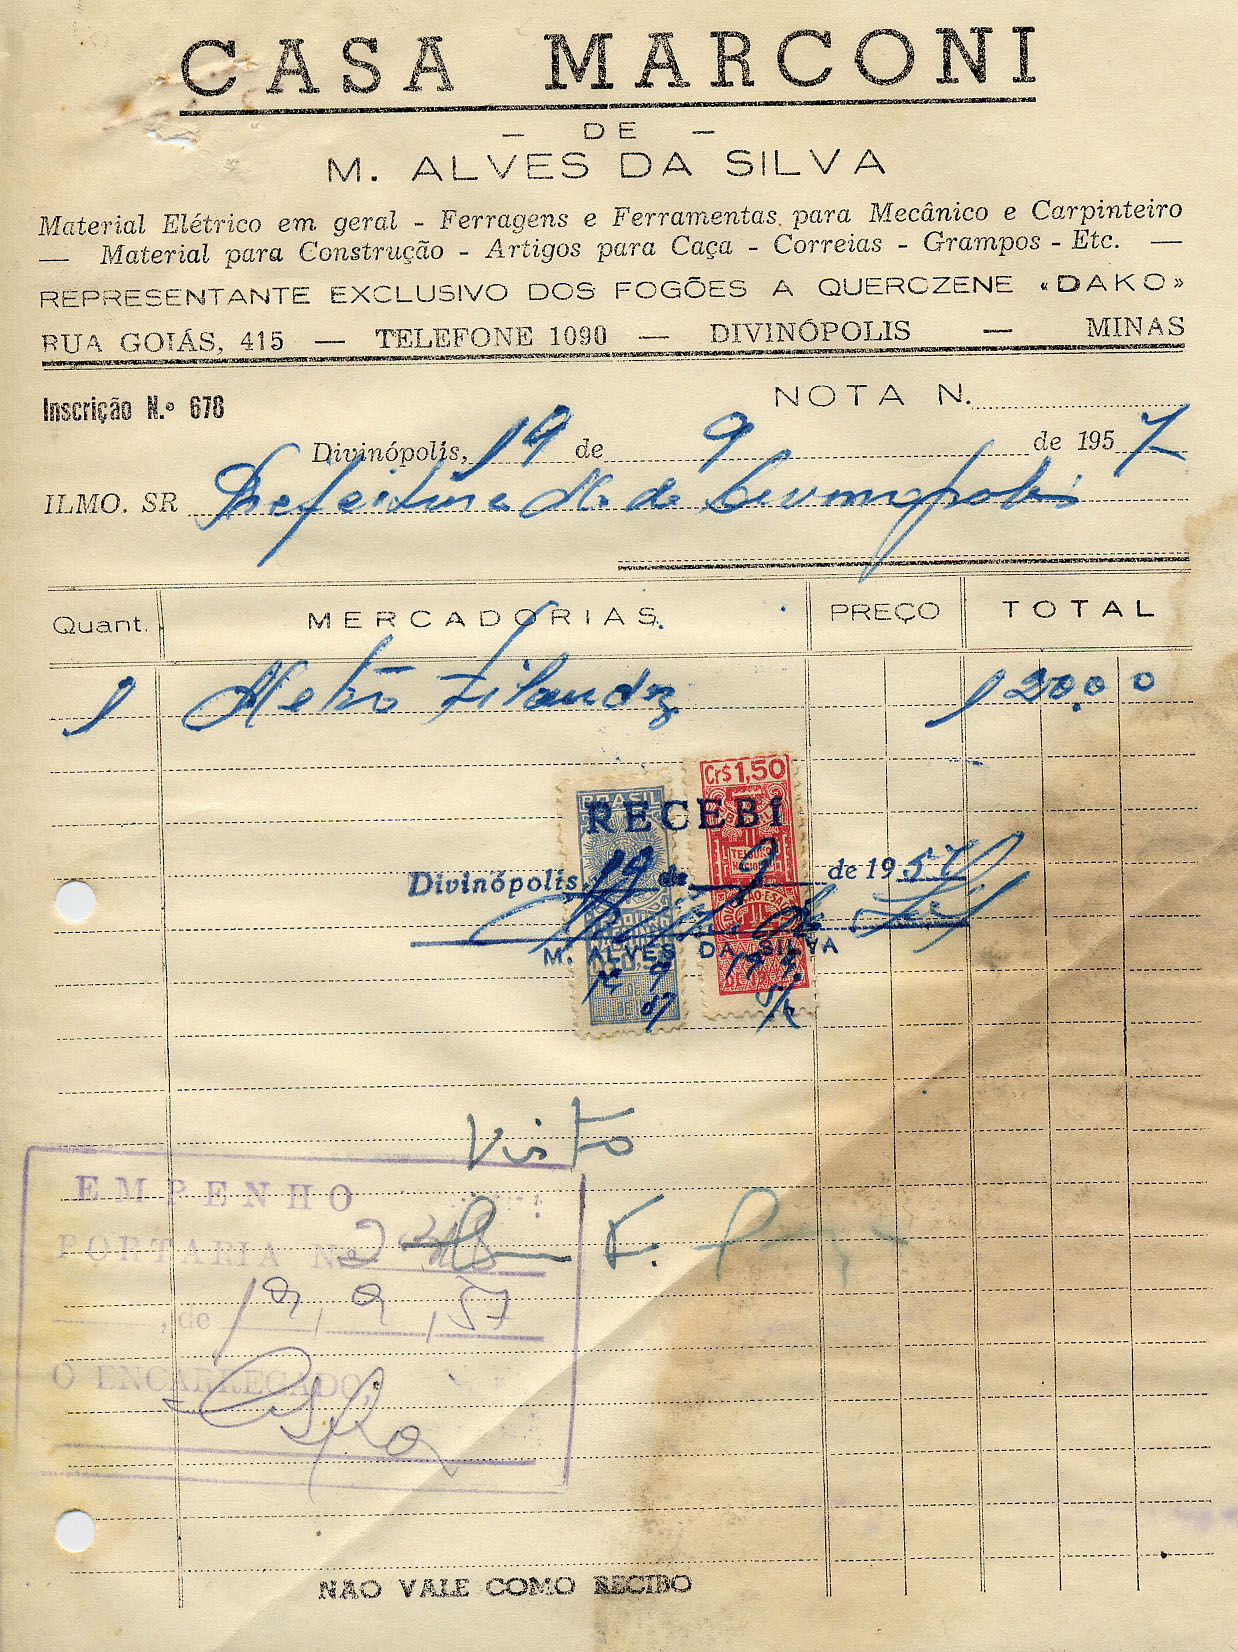 CASA MARCONI
— DE —
M. ALVES DA SILVA
Material Elétrico em geral - Ferragens e Ferramentas para Mecânico e Carpinteiro
— Material para Construção - Artigos para Caça - Correias - Grampos - Etc. —
REPRESENTANTE EXCLUSIVO DOS FOGÕES A QUEROZENE «DAKO»
RUA GOIÁS, 415 — TELEFONE 1090 — DIVINÓPOLIS — MINAS
Inscrição N.º 678
NOTA N.
Divinópolis, 19 de 9 de 1957
ILMO. SR Prefeitura M. de Divinopolis
Quant. MERCADORIAS PREÇO TOTAL
1 Metro
Cr$ 1,50
BRASIL
RECEBI
TESOURO
Divinópolis, 19 de 9 de 1957
M. ALVES DA SILVA
19 9
57
Visto
EMPENHO
PORTARIA Nº
, de 19, 9, 57
O ENCARREGADO,
NAO VALE COMO RECIBO